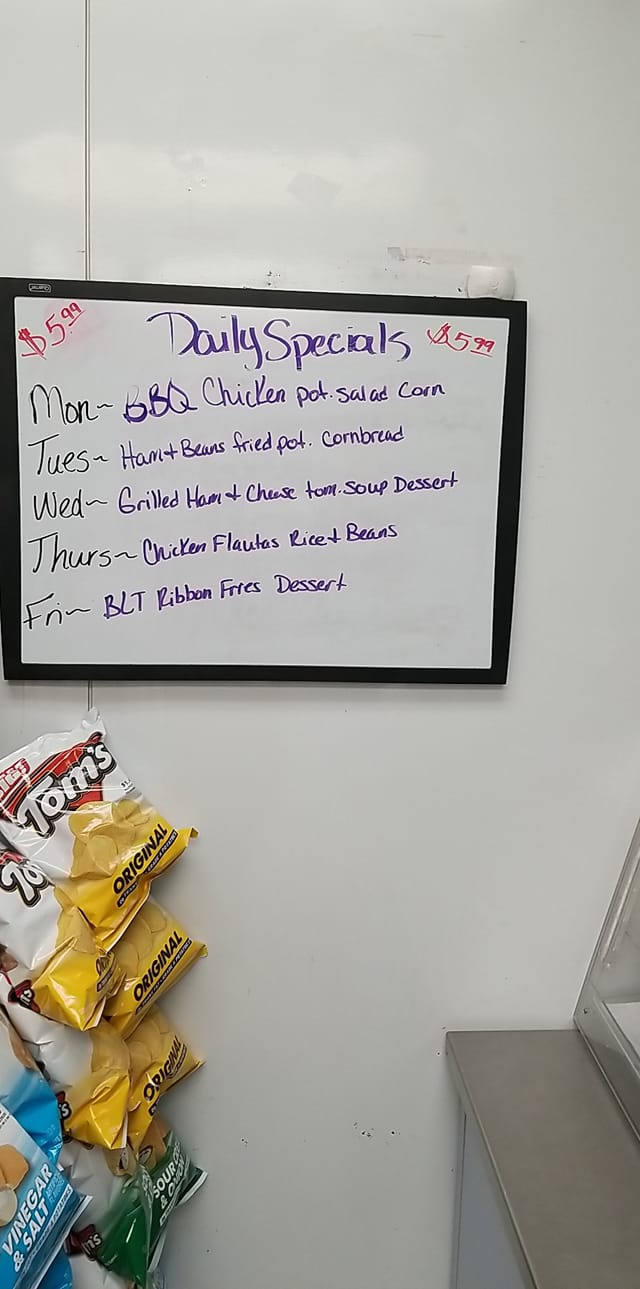 $5.99 Daily Specials $5.99
Mon~ BBQ Chicken pot. salad Corn
Tues~ Ham + Beans fried pot. Cornbread
Wed~ Grilled Ham + Cheese tom. Soup Dessert
Thurs~ Chicken Flautas Rice + Beans
Fri~ BLT Ribbon Fries Dessert
Tom's
ORIGINAL
ORIGINAL
ORIGINAL
VINEGAR
& SALT
SOUR